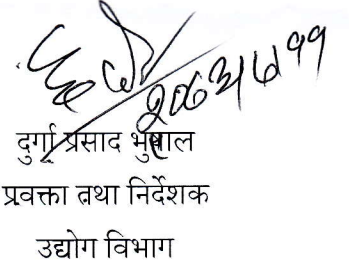 दुर्गा प्रसाद भुसाल
प्रवक्ता तथा निर्देशक
उद्योग विभाग